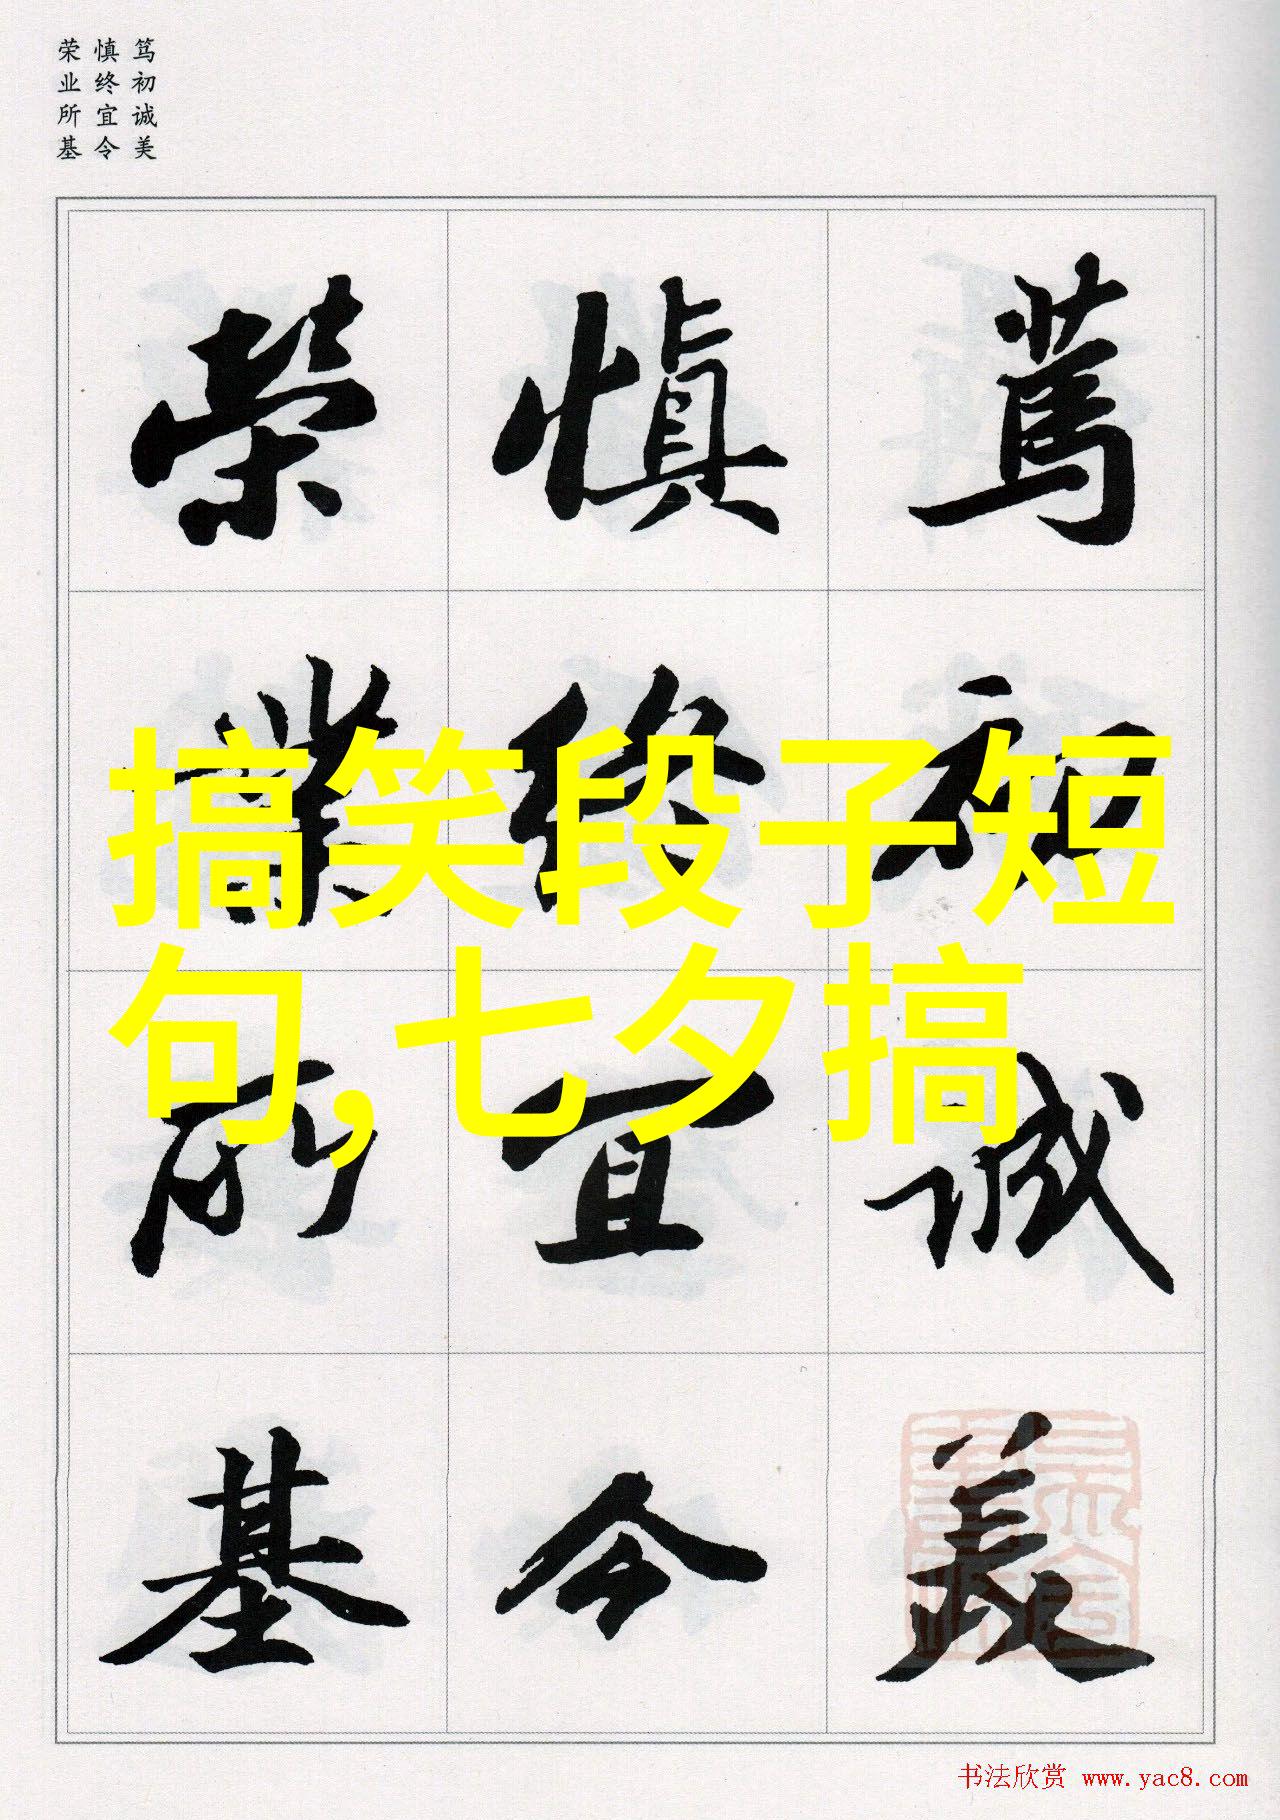 笃初诚美
慎终宜令
荣业所基
篤初誠美
慎終宜令
榮業所基
搞笑段子短
句,七夕搞
书法欣赏 www.yac8.com